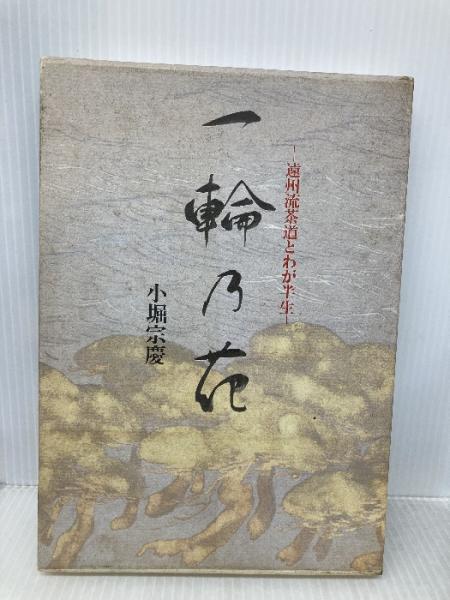 一輪乃花
-遠州流茶道とわが半生-
小堀宗慶